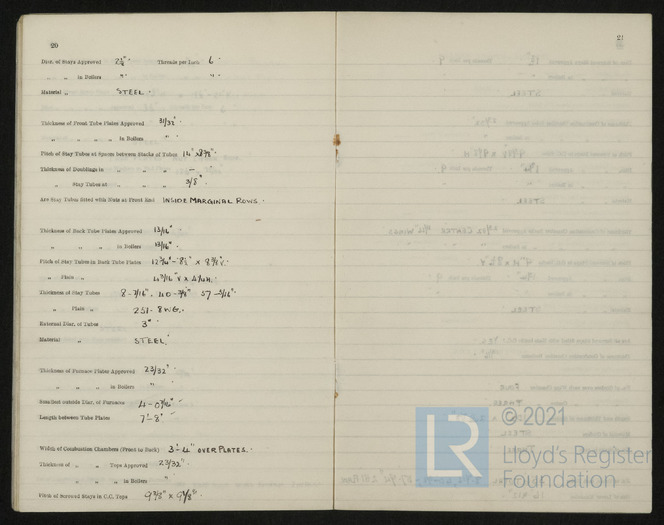 20
Diar. of Stays Approved 2¼" Threads per Inch 6
" " in Boilers " "
Material " STEEL.
Thickness of Front Tube Plates Approved 31/32"
" " " " in Boilers "
Pitch of Stay Tubes at Spaces between Stacks of Tubes 14" x 8½"
Thickness of Doublings in " " " –
" Stay Tubes at " " " 3/8"
Are Stay Tubes fitted with Nuts at Front End INSIDE MARGINAL ROWS.
Thickness of Back Tube Plates Approved 13/16"
" " " in Boilers 13/16"
Pitch of Stay Tubes in Back Tube Plates
" Plain "
Thickness of Stay Tubes 8-7/16". 40-3/8" 57-5/16"
" Plain " 251- 8WG.
External Diar. of Tubes 3"
Material " STEEL.
Thickness of Furnace Plates Approved 23/32"
" " " in Boilers "
Smallest outside Diar. of Furnaces
Length between Tube Plates 7'-8"
Width of Combustion Chambers (Front to Back) 3'-4" OVER PLATES.
Thickness of " " Tops Approved 23/32"
" " " in Boilers "
Pitch of Screwed Stays in C.C. Tops
21
LR
©2021
Lloyd's Register
Foundation